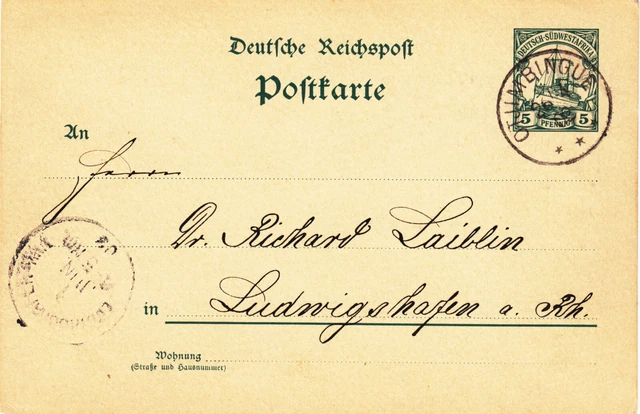 DEUTSCH-SÜDWESTAFRIKA
5 PFENNIG 5
OTJIMBINGUE
* *
Deutsche Reichspost
Postkarte
An
Herrn
Dr. Richard Laiblin
in Ludwigshafen a. Rh.
Wohnung
(Straße und Hausnummer)